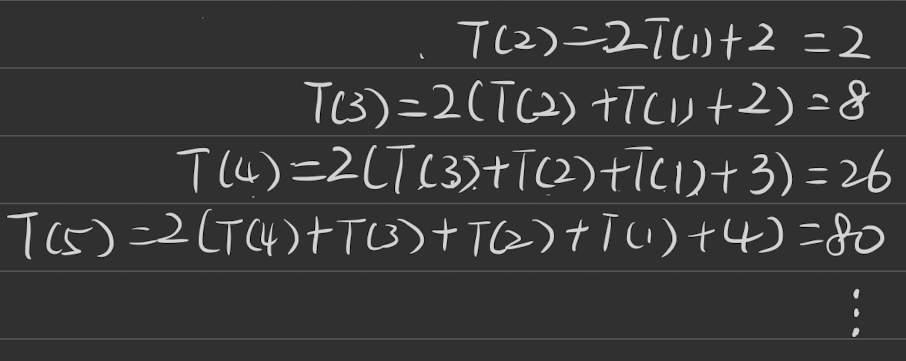 T(2)=2T(1)+2=2
T(3)=2(T(2)+T(1)+2)=8
T(4)=2(T(3)+T(2)+T(1)+3)=26
T(5)=2(T(4)+T(3)+T(2)+T(1)+4)=80
⋮